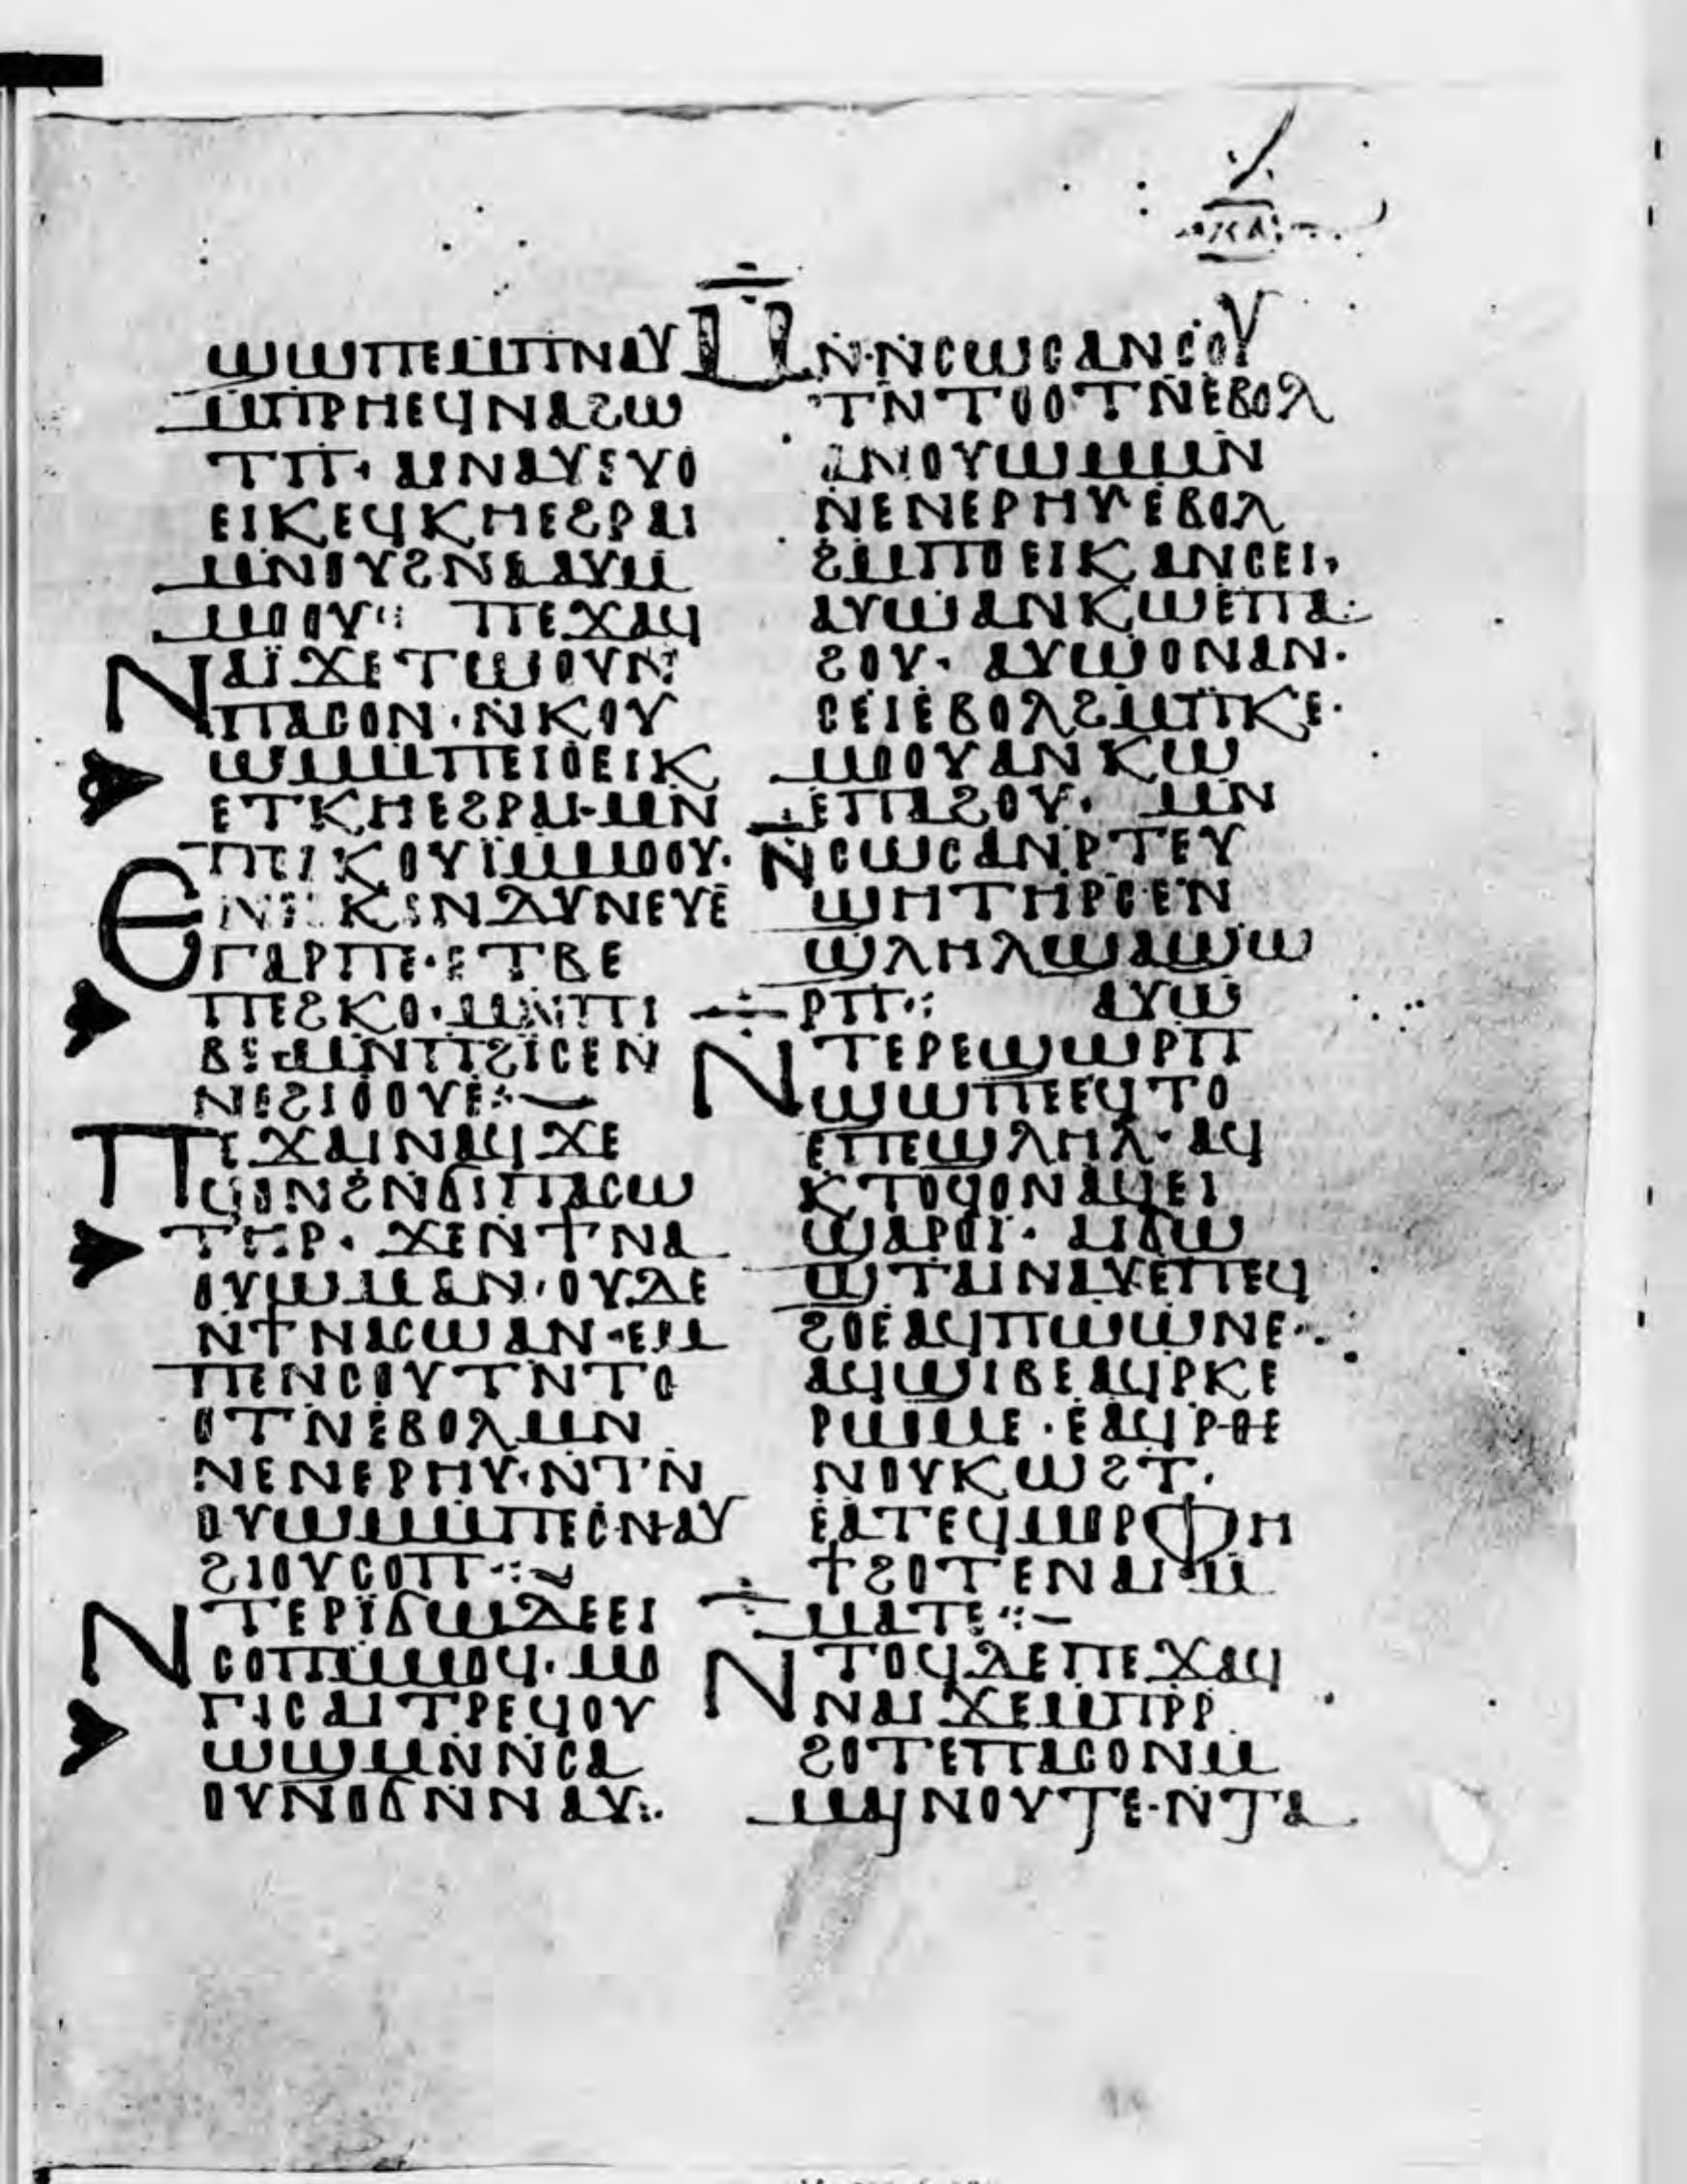 ⲕⲁ
ϣⲱⲡⲉⲙⲡⲛⲁⲩ
ⲙⲡⲣⲏⲉϥⲛⲁϩⲱ
ⲧⲡ· ⲁⲓⲛⲁⲩⲉⲩⲟ
ⲉⲓⲕⲉϥⲕⲏⲉϩⲣⲁⲓ
ⲙⲛⲟⲩϩⲛⲁⲁⲩⲙ
ⲙⲟⲟⲩ⁖ ⲡⲉϫⲁϥ
ⲛⲁⲓ̈ϫⲉⲧⲱⲟⲩⲛ
ⲡⲁⲥⲟⲛ·ⲛⲕⲟⲩ
ⲱⲙⲙⲡⲉⲓⲟⲉⲓⲕ
ⲉⲧⲕⲏⲉϩⲣⲁⲓ·ⲙⲛ
ⲡⲉⲓⲕⲟⲩⲓ̈ⲙⲙⲟⲟⲩ·
ⲉⲛⲉⲕⲓⲛⲇⲩⲛⲉⲩⲉ
ⲅⲁⲣⲡⲉ·ⲉⲧⲃⲉ
ⲡⲉϩⲕⲟ·ⲙⲛⲡⲓ
ⲃⲉ·ⲙⲛⲡϩⲓⲥⲉⲛ
ⲛⲉϩⲓⲟⲟⲩⲉ⁖
ⲡⲉϫⲁⲓⲛⲁϥϫⲉ
ϥⲟⲛϩⲛϭⲓⲡⲁⲥⲱ
ⲧⲏⲣ· ϫⲉⲛϯⲛⲁ
ⲟⲩⲱⲙⲁⲛ·ⲟⲩⲇⲉ
ⲛϯⲛⲁⲥⲱⲁⲛ·ⲉⲙ
ⲡⲉⲛⲥⲟⲩⲧⲛⲧⲟ
ⲟⲧⲛⲉⲃⲟⲗⲙⲛ
ⲛⲉⲛⲉⲣⲏⲩ·ⲛⲧⲛ
ⲟⲩⲱⲙⲙⲡⲉⲥⲛⲁⲩ
ϩⲓⲟⲩⲥⲟⲡ⁖
ⲛⲧⲉⲣⲓ̈ϭⲱⲇⲉⲉⲓ
ⲥⲟⲡⲥⲙⲙⲟϥ·ⲙⲟ
ⲅⲓⲥⲁⲓⲧⲣⲉϥⲟⲩ
ⲱϣⲙⲛⲛⲥⲁ
ⲟⲩⲛⲟϭⲛⲛⲁⲩ⁖
ⲙⲛ·ⲛⲥⲱⲥⲁⲛⲥⲟⲩ
ⲧⲛⲧⲟⲟⲧⲛⲉⲃⲟⲗ
ⲁⲛⲟⲩⲱⲙⲙⲛ
ⲛⲉⲛⲉⲣⲏⲩⲉⲃⲟⲗ
ϩⲙⲡⲟⲉⲓⲕⲁⲛⲥⲉⲓ·
ⲁⲩⲱⲁⲛⲕⲱⲉⲡⲁ
ϩⲟⲩ· ⲁⲩⲱⲟⲛⲁⲛ·
ⲥⲉⲓⲉⲃⲟⲗϩⲙⲡⲕⲉ·
ⲙⲟⲟⲩⲁⲛⲕⲱ
ⲉⲡⲁϩⲟⲩ· ⲙⲛ
ⲛⲥⲱⲥⲁⲛⲣⲧⲉⲩ
ϣⲏⲧⲏⲣⲥⲉⲛ
ϣⲗⲏⲗϣⲁϣⲱ
ⲣⲡ⁖ ⲁⲩⲱ
ⲛⲧⲉⲣⲉϣⲱⲣⲡ
ϣⲱⲡⲉⲉϥⲧⲟ
ⲉⲡⲉϣⲗⲏⲗ·ⲁϥ
ⲕⲧⲟϥⲟⲛⲁϥⲉⲓ
ϣⲁⲣⲟⲓ· ⲁⲓϭⲱ
ϣⲧⲁⲓⲛⲁⲩⲉⲡⲉϥ
ϩⲟⲉⲁϥⲡⲱⲱⲛⲉ·
ⲁϥϣⲓⲃⲉⲁϥⲣⲕⲉ
ⲣⲱⲙⲉ·ⲉⲁϥⲣⲑⲉ
ⲛⲟⲩⲕⲱϩⲧ·
ⲉⲁⲧⲉϥⲙⲟⲣⲫⲏ
ϯϩⲟⲧⲉⲛⲁⲓⲙ
ⲙⲁⲧⲉ⁖
ⲛⲧⲟϥⲇⲉⲡⲉϫⲁϥ
ⲛⲛⲁⲓϫⲉⲙⲡⲣⲣ
ϩⲟⲧⲉⲡⲁⲥⲟⲛⲙ
ⲙⲁⲓ̈ⲛⲟⲩⲧⲉ·ⲛⲧⲁ